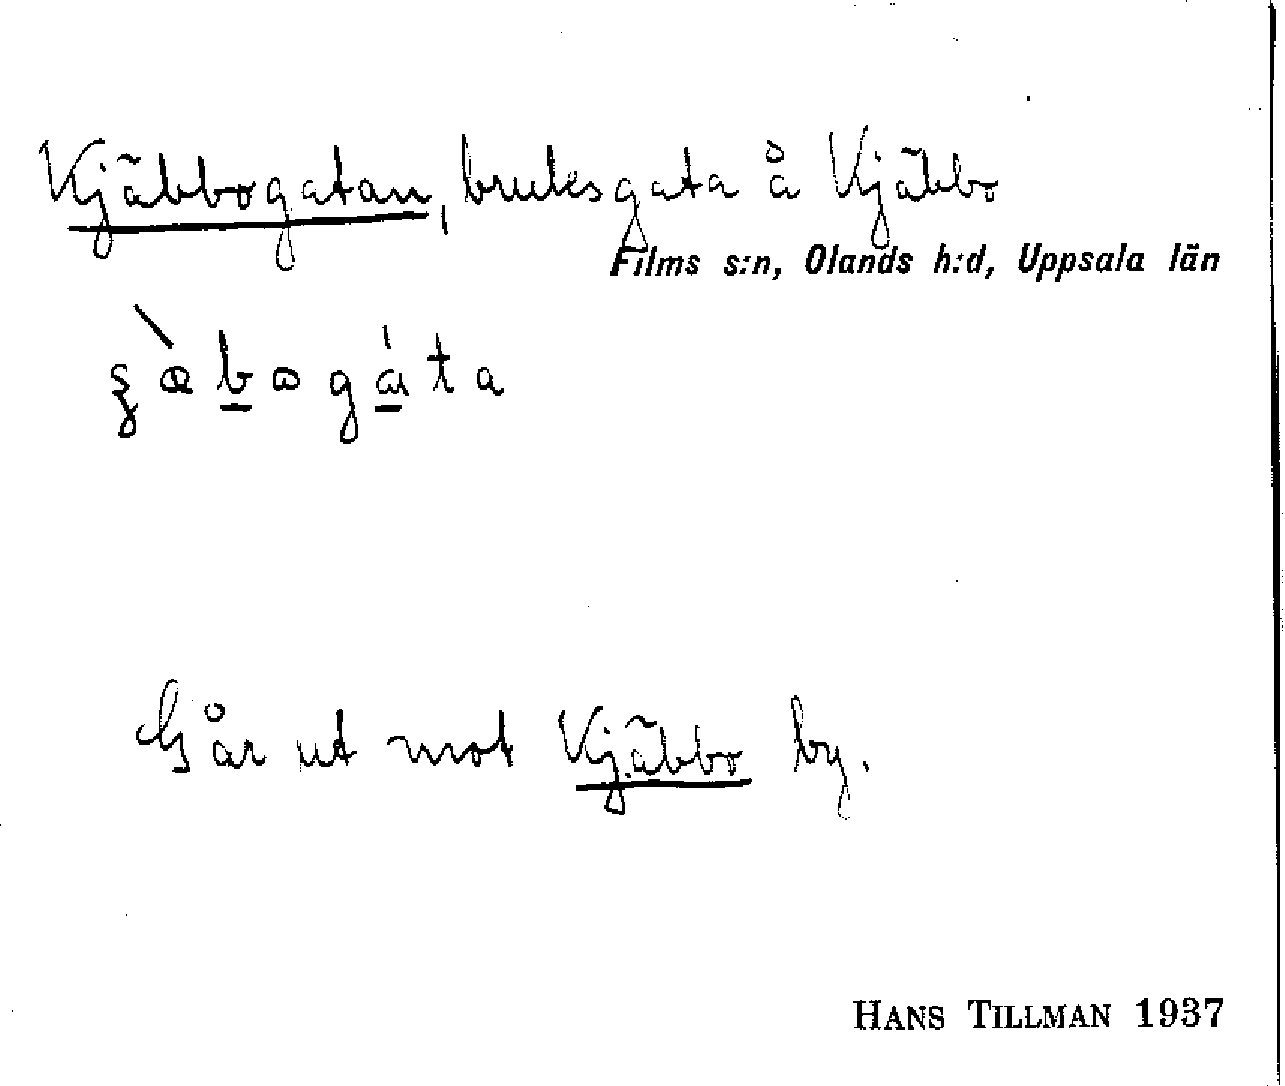 Kjäbbogatan, bruksgata å Kjäbbo
Films s:n, Olands h:d, Uppsala län
Går ut mot Kjäbbo by.
HANS TILLMAN 1937